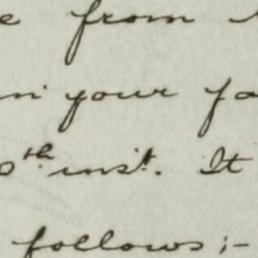 from
in your
th inst. It
follows:-